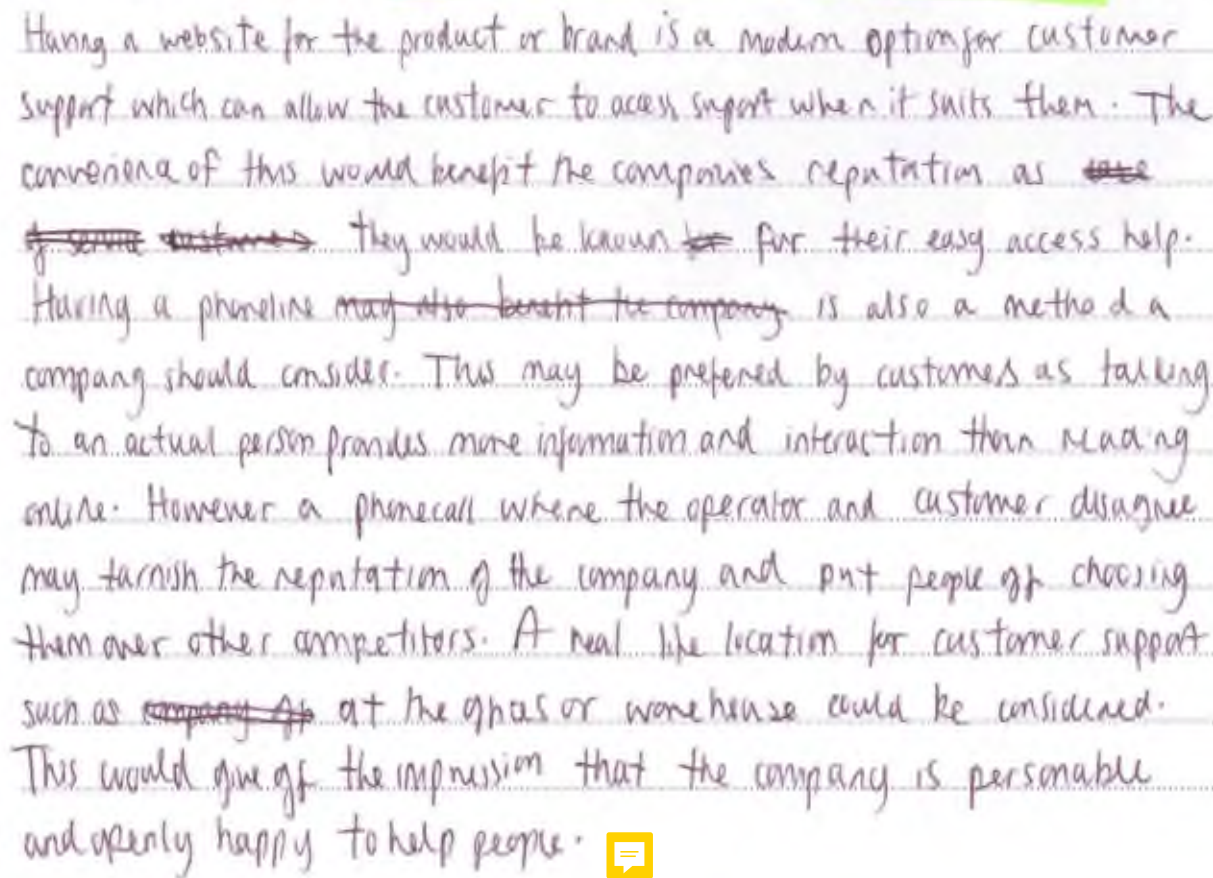 Having a website for the product or brand is a modern option for customer
support which can allow the customer to access suport when it suits them. The
convenience of this would benefit the companies reputation as
they would be known for their easy access help.
Having a phoneline may also benefit the company is also a method a
company should consider. This may be prefered by customers as talking
to an actual person provides more information and interaction than reading
online. However a phonecall where the operator and customer disagree
may tarnish the reputation of the company and put people off choosing
them over other competitors. A real life location for customer support
such as company off at the offices or warehouse could be considered.
This would give off the impression that the company is personable
and openly happy to help people.